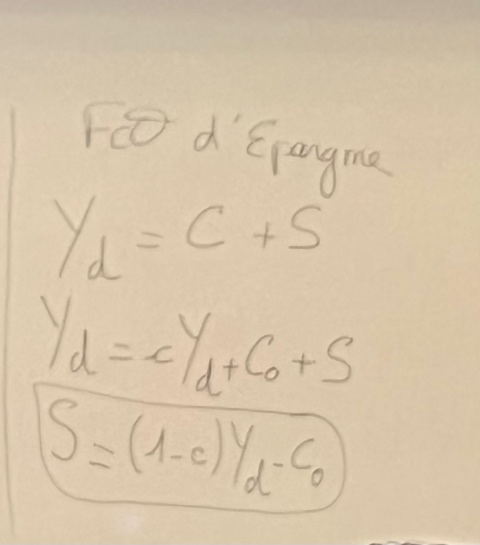 Fcø d'Epargne
Yd = C + S
Yd = cYd + C₀ + S
S = (1-c)Yd - C₀